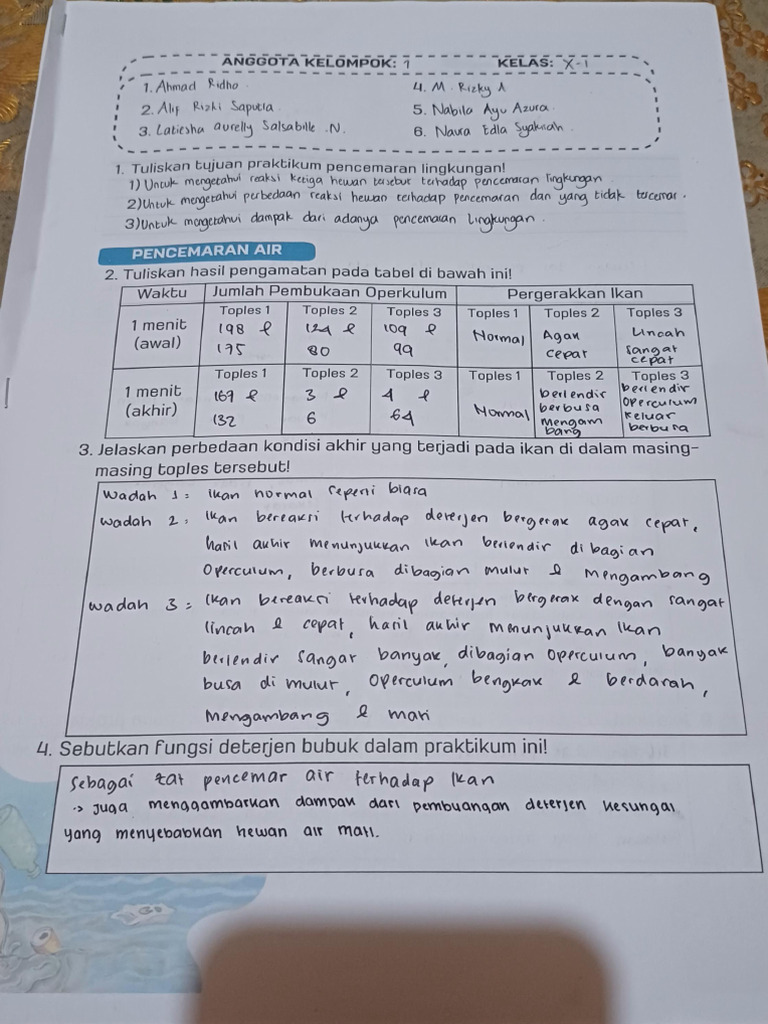 ANGGOTA KELOMPOK: 1 KELAS: X-1
1. Ahmad Ridho. 4. M. Rizky A
2. Alif Rizki Saputra. 5. Nabila Ayu Azura.
3. Latiesha aurelly Salsabille .N. 6. Naura Edla Syakirah.
1. Tuliskan tujuan praktikum pencemaran lingkungan!
1) Untuk mengetahui reaksi ketiga hewan tersebut terhadap pencemaran lingkungan
2) Untuk mengetahui perbedaan reaksi hewan terhadap pencemaran dan yang tidak tercemar.
3) Untuk mengetahui dampak dari adanya pencemaran lingkungan.
PENCEMARAN AIR
2. Tuliskan hasil pengamatan pada tabel di bawah ini!
Waktu Jumlah Pembukaan Operkulum Pergerakkan Ikan
Toples 1 Toples 2 Toples 3 Toples 1 Toples 2 Toples 3
1 menit (awal) 198 & 175 124 & 80 109 & 99 Normal Agak cepat Lincah sangat cepat
Toples 1 Toples 2 Toples 3 Toples 1 Toples 2 Toples 3
1 menit (akhir) 169 & 132 3 & 6 4 & 64 Normal berlendir berbusa mengambang berlendir operculum keluar berbusa
3. Jelaskan perbedaan kondisi akhir yang terjadi pada ikan di dalam masing-
masing toples tersebut!
Wadah 1 = Ikan normal seperti biasa
Wadah 2 = Ikan bereaksi terhadap deterjen bergerak agak cepat,
hasil akhir menunjukkan ikan berlendir di bagian
Operculum, berbusa dibagian mulut & Mengambang
Wadah 3 = Ikan bereaksi terhadap deterjen bergerak dengan sangat
lincah & cepat, hasil akhir menunjukkan ikan
berlendir sangat banyak, dibagian operculum, banyak
busa di mulut, operculum bengkak & berdarah,
Mengambang & mati
4. Sebutkan fungsi deterjen bubuk dalam praktikum ini!
Sebagai zat pencemar air terhadap Ikan
-> Juga menggambarkan dampak dari pembuangan deterjen kesungai
yang menyebabkan hewan air mati.